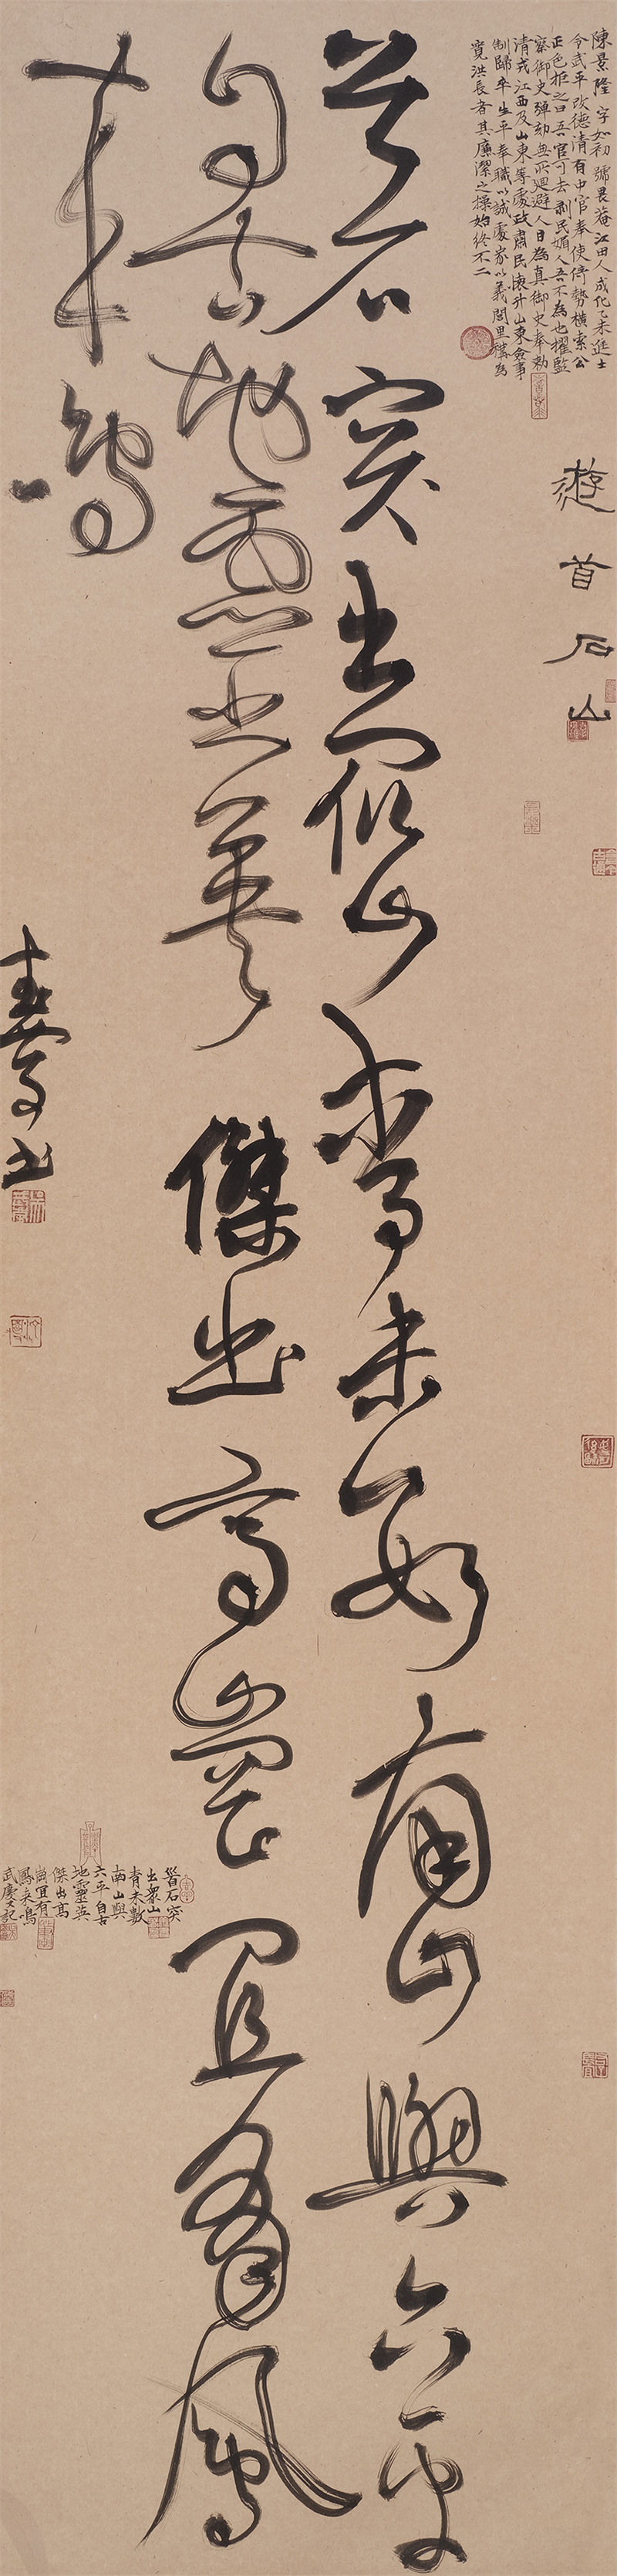 陳景隆字如初號畏菴江田人成化乙未進士
令武平改德清有中官奉使倚勢橫索公
正色拒之曰吾官可去剥民媚人吾不為也擢監
察御史彈劾無所廻避人目為真御史奉勅
清戎江西及山東等處政肅民懷升山東僉事
制歸卒生平奉職以誠處家以義閭里稱為
寬洪長者其廉潔之操始終不二
遊首石山
首石突出衆山青未數南山與六平
自古地靈英傑出高崗宜有鳳
來鳴
書
首石突
出衆山
青未數
南山與
六平自古
地靈英
傑出高
崗宜有
鳳来鳴
武慶記